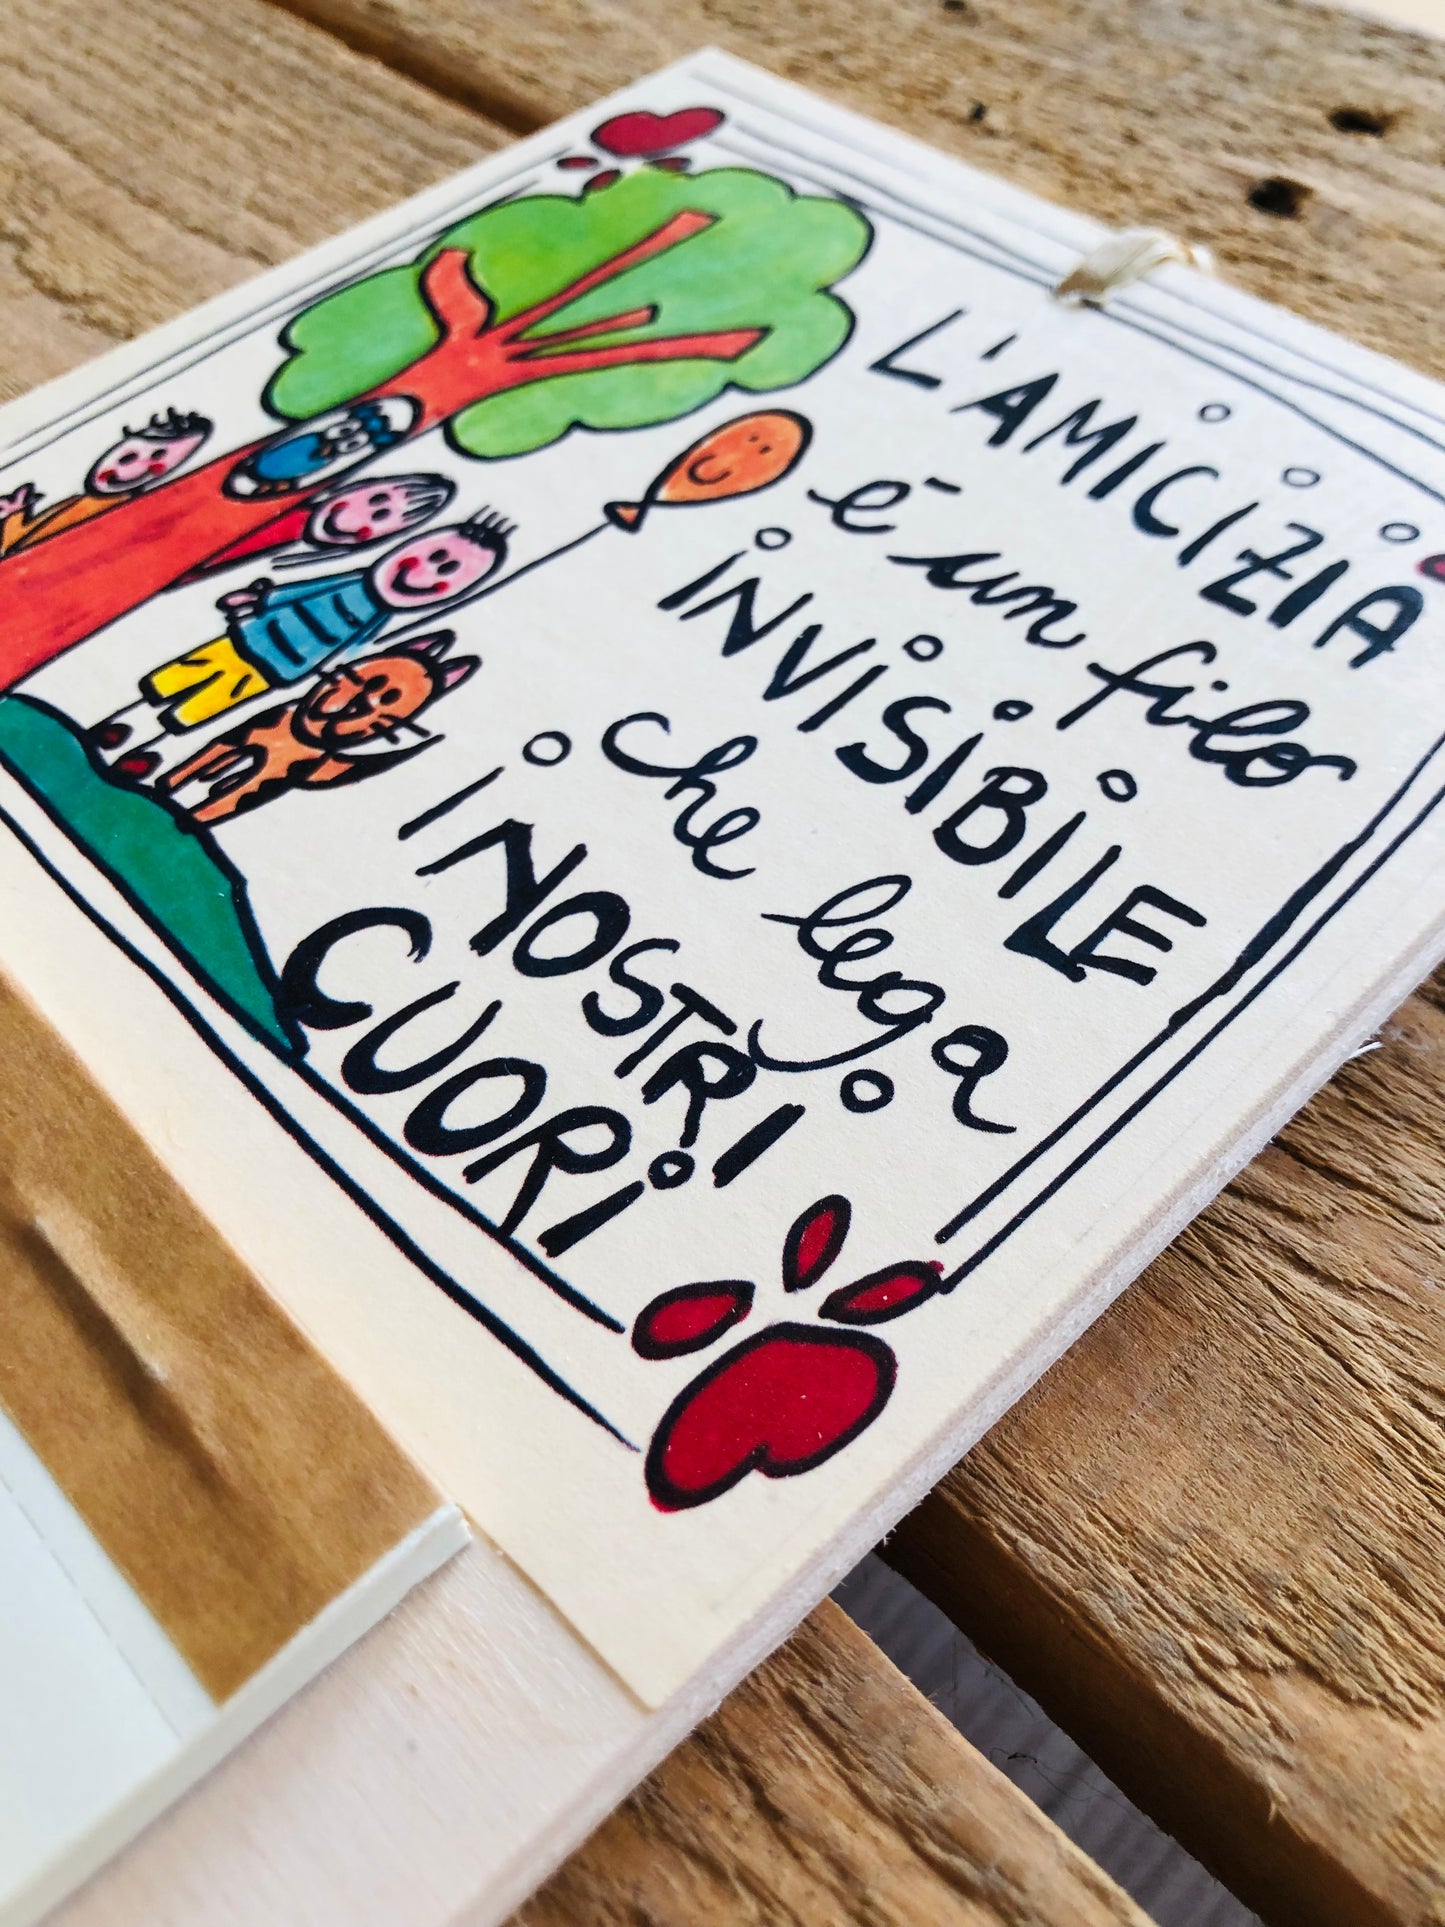 L'AMICIZIA
è un filo
INVISIBILE
che lega
I NOSTRI
CUORI